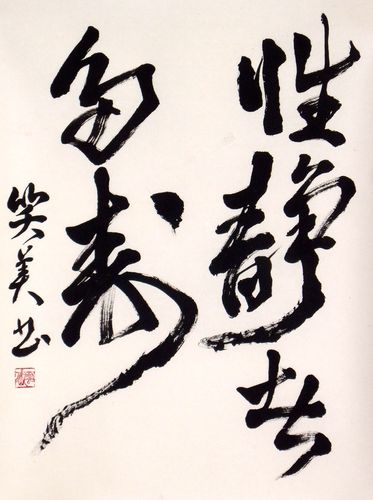 性静者
多寿
笑美书